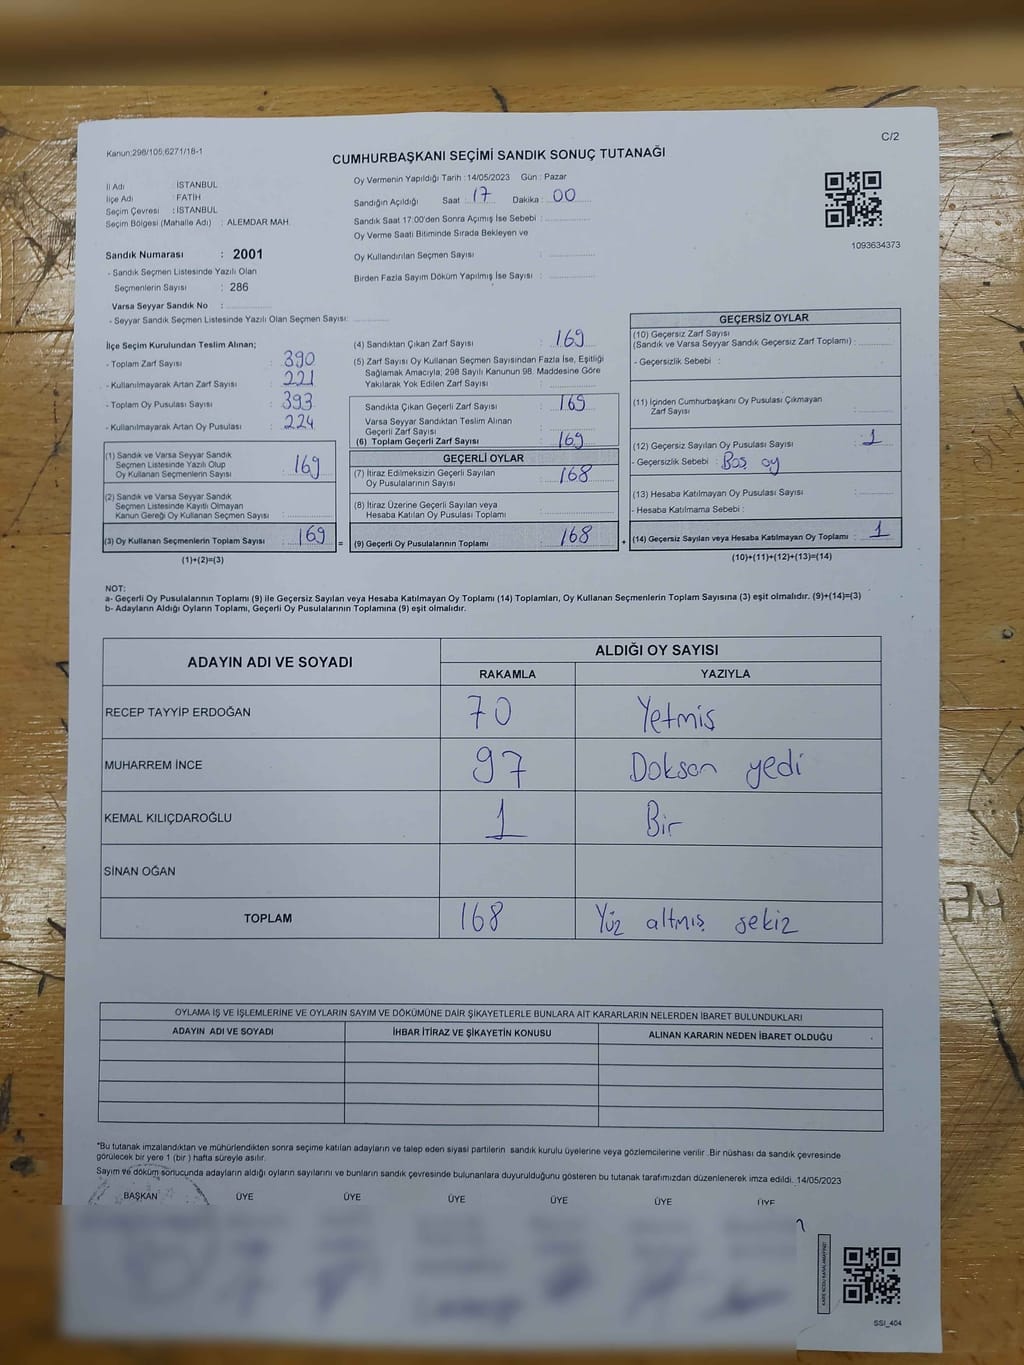 C/2
Kanun:298/105,6271/18-1
CUMHURBAŞKANI SEÇİMİ SANDIK SONUÇ TUTANAĞI
İl Adı : İSTANBUL
İlçe Adı : FATİH
Seçim Çevresi : İSTANBUL
Seçim Bölgesi (Mahalle Adı) : ALEMDAR MAH.
Oy Vermenin Yapıldığı Tarih :14/05/2023 Gün : Pazar
Sandığın Açıldığı Saat : 17 Dakika : 00
Sandık Saat 17:00'den Sonra Açımış İse Sebebi :
Oy Verme Saati Bitiminde Sırada Bekleyen ve
Oy Kullandırılan Seçmen Sayısı :
Birden Fazla Sayım Döküm Yapılmış İse Sayısı :
1093634373
Sandık Numarası : 2001
- Sandık Seçmen Listesinde Yazılı Olan
Seçmenlerin Sayısı : 286
Varsa Seyyar Sandık No :
- Seyyar Sandık Seçmen Listesinde Yazılı Olan Seçmen Sayısı:
İlçe Seçim Kurulundan Teslim Alınan;
- Toplam Zarf Sayısı : 390
- Kullanılmayarak Artan Zarf Sayısı : 221
- Toplam Oy Pusulası Sayısı : 393
- Kullanılmayarak Artan Oy Pusulası : 224
(1) Sandık ve Varsa Seyyar Sandık
Seçmen Listesinde Yazılı Olup
Oy Kullanan Seçmenlerin Sayısı : 169
(2) Sandık ve Varsa Seyyar Sandık
Seçmen Listesinde Kayıtlı Olmayan
Kanun Gereği Oy Kullanan Seçmen Sayısı :
(3) Oy Kullanan Seçmenlerin Toplam Sayısı : 169
(1)+(2)=(3)
(4) Sandıktan Çıkan Zarf Sayısı : 169
(5) Zarf Sayısı Oy Kullanan Seçmen Sayısından Fazla İse, Eşitliği
Sağlamak Amacıyla; 298 Sayılı Kanunun 98. Maddesine Göre
Yakılarak Yok Edilen Zarf Sayısı :
Sandıkta Çıkan Geçerli Zarf Sayısı : 169
Varsa Seyyar Sandıktan Teslim Alınan
Geçerli Zarf Sayısı :
(6) Toplam Geçerli Zarf Sayısı : 169
GEÇERLİ OYLAR
(7) İtiraz Edilmeksizin Geçerli Sayılan
Oy Pusulalarının Sayısı : 168
(8) İtiraz Üzerine Geçerli Sayılan veya
Hesaba Katılan Oy Pusulası Toplamı :
= (9) Geçerli Oy Pusulalarının Toplamı : 168
GEÇERSİZ OYLAR
(10) Geçersiz Zarf Sayısı
(Sandık ve Varsa Seyyar Sandık Geçersiz Zarf Toplamı) :
- Geçersizlik Sebebi :
(11) İçinden Cumhurbaşkanı Oy Pusulası Çıkmayan
Zarf Sayısı :
(12) Geçersiz Sayılan Oy Pusulası Sayısı : 1
- Geçersizlik Sebebi : Boş oy
(13) Hesaba Katılmayan Oy Pusulası Sayısı :
- Hesaba Katılmama Sebebi :
+ (14) Geçersiz Sayılan veya Hesaba Katılmayan Oy Toplamı : 1
(10)+(11)+(12)+(13)=(14)
NOT:
a- Geçerli Oy Pusulalarının Toplamı (9) ile Geçersiz Sayılan veya Hesaba Katılmayan Oy Toplamı (14) Toplamları, Oy Kullanan Seçmenlerin Toplam Sayısına (3) eşit olmalıdır. (9)+(14)=(3)
b- Adayların Aldığı Oyların Toplamı, Geçerli Oy Pusulalarının Toplamına (9) eşit olmalıdır.
ADAYIN ADI VE SOYADI ALDIĞI OY SAYISI
RAKAMLA YAZIYLA
RECEP TAYYİP ERDOĞAN 70 Yetmis
MUHARREM İNCE 97 Doksan yedi
KEMAL KILIÇDAROĞLU 1 Bir
SİNAN OĞAN
TOPLAM 168 Yüz altmış sekiz
OYLAMA İŞ VE İŞLEMLERİNE VE OYLARIN SAYIM VE DÖKÜMÜNE DAİR ŞİKAYETLERLE BUNLARA AİT KARARLARIN NELERDEN İBARET BULUNDUKLARI
ADAYIN ADI VE SOYADI İHBAR İTİRAZ VE ŞİKAYETİN KONUSU ALINAN KARARIN NEDEN İBARET OLDUĞU
*Bu tutanak imzalandıktan ve mühürlendikten sonra seçime katılan adayların ve talep eden siyasi partilerin sandık kurulu üyelerine veya gözlemcilerine verilir .Bir nüshası da sandık çevresinde
görülecek bir yere 1 (bir ) hafta süreyle asılır.
Sayım ve döküm sonucunda adayların aldığı oyların sayılarını ve bunların sandık çevresinde bulunanlara duyurulduğunu gösteren bu tutanak tarafımızdan düzenlenerek imza edildi. 14/05/2023
BAŞKAN ÜYE ÜYE ÜYE ÜYE ÜYE ÜYE
SSI_404